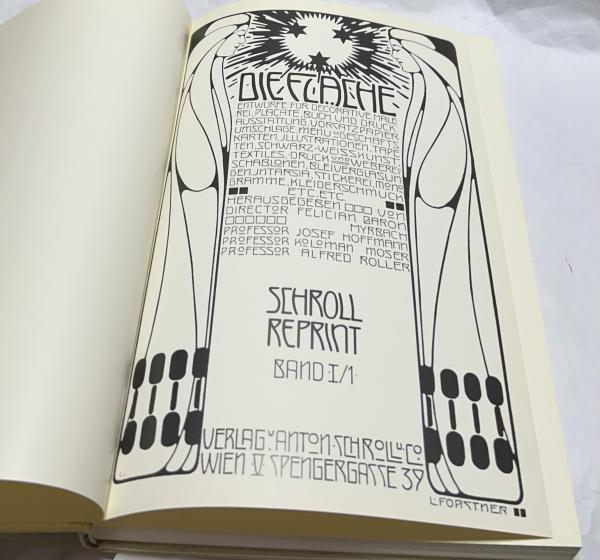 DIE FLÄCHE
ENTWÜRFE FÜR DECORATIVE MALE
REI, PLACATE, BUCH UND DRUCK
AUSSTATTUNG, VORSATZPAPIER
UMSCHLAGE, MENU U GESCHÄFTS
KARTEN, ILLUSTRATIONEN, TAPE
TEN, SCHWARZ-WEISSKUNST
TEXTILES, DRUCK UND WEBEREI
SCHABLONEN, BLEIVERGLASUN
GEN, INTARSIA, STICKEREI, MONO
GRAMME, KLEIDERSCHMUCK
ETC. ETC.
HERAUSGEGEBEN VON
DIRECTOR FELICIAN BARON
MYRBACH
PROFESSOR JOSEF HOFFMANN
PROFESSOR KOLOMAN MOSER
PROFESSOR ALFRED ROLLER
SCHROLL
REPRINT
BAND I/1
VERLAG V ANTON SCHROLL U CO
WIEN V SPENGERGASSE 39
L. FORSTNER